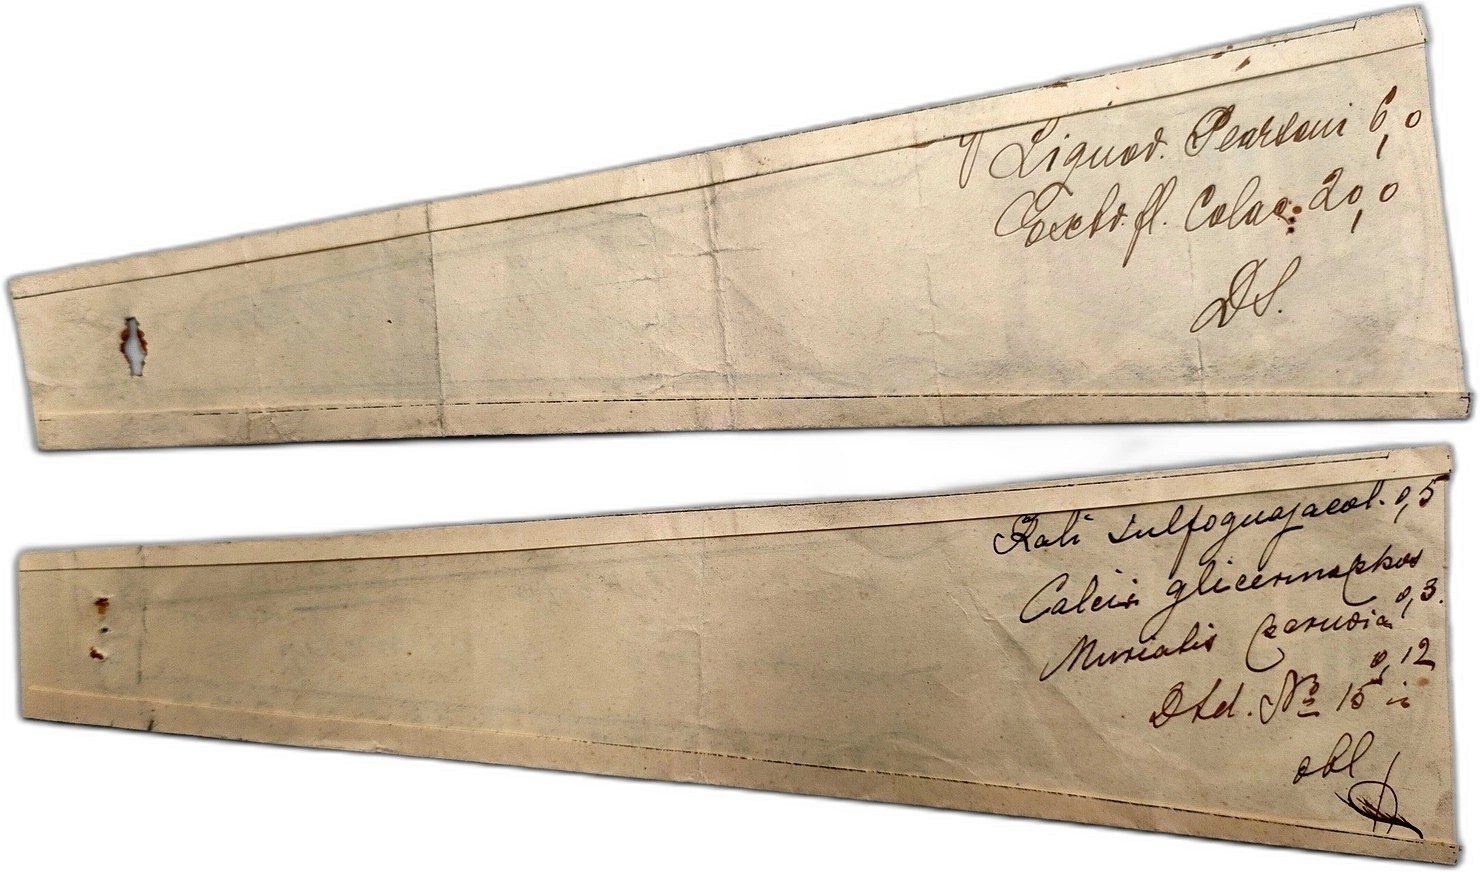 Liquor. Pearsoni 6,0
Extr. fl. Colae 20,0
DS.
Kali sulfoguajacol. 0,5
Calcis glicerinophos
0,3.
Murialis
0,12
Dtd. № 15 in
obl